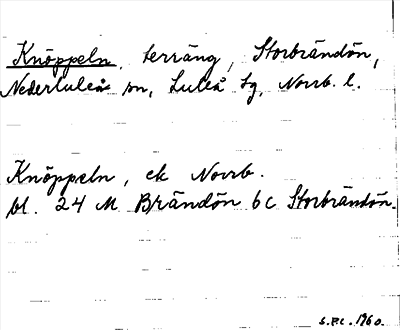 Knöppeln, terräng, Storbrändön,
Nederluleå sn, Luleå tg, Norrb. l.
Knöppeln, ek Norrb.
bl. 24 M Brändön 6c Storbrändön.
1960.